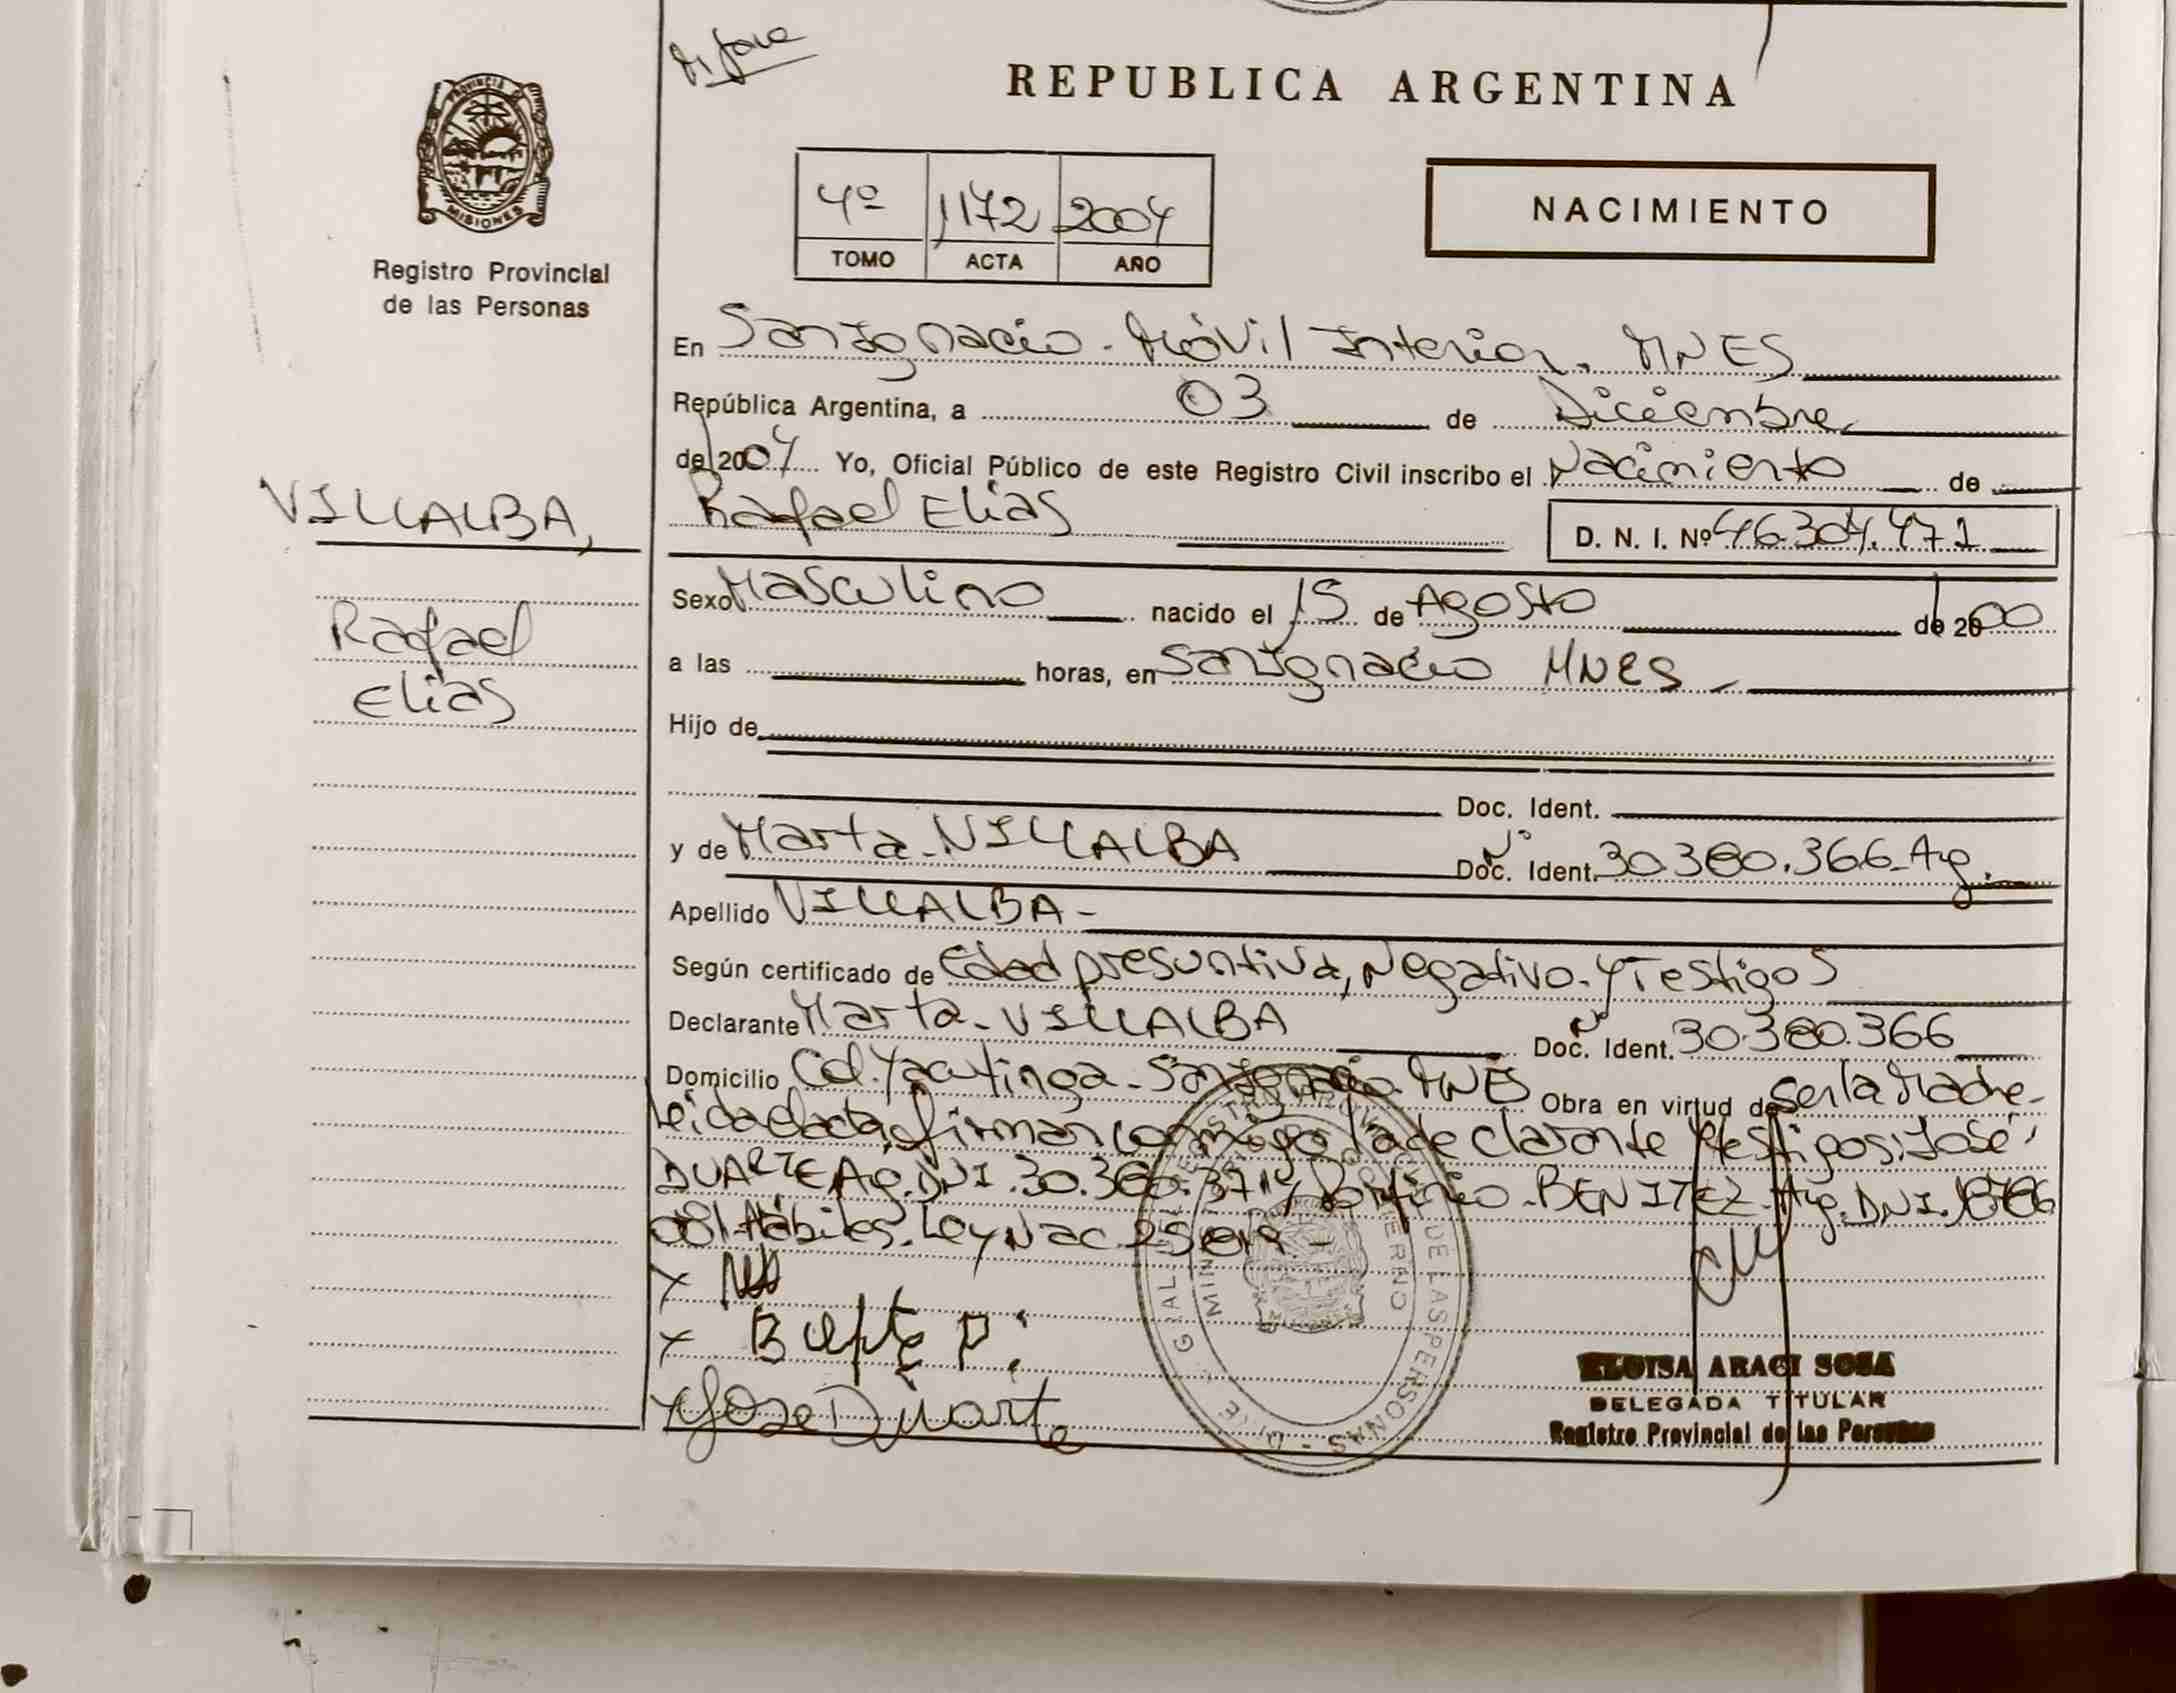 REPUBLICA ARGENTINA
PROVINCIA DE
MISIONES
Registro Provincial
de las Personas
4º 1172 2004
TOMO ACTA AÑO
NACIMIENTO
En San Ignacio - Móvil Interior. MNES
República Argentina, a 03 de Diciembre
de 2004 Yo, Oficial Público de este Registro Civil inscribo el Nacimiento de
Rafael Elias D. N. I. Nº 46.304.471
VILLALBA,
Rafael
Elias
Sexo Masculino nacido el 15 de Agosto de 2000
a las horas, en San Ignacio MNES -
Hijo de
Doc. Ident.
y de Marta - VILLALBA Nº Doc. Ident. 30.380.366 - Arg.
Apellido VILLALBA -
Según certificado de Edad presuntiva, Negativo - y Testigos
Declarante Marta - VILLALBA Nº Doc. Ident. 30.380.366
Domicilio Col. Yacutinga - San Ignacio MNES Obra en virtud de Ser la Madre -
Leida el acta, firman conmigo la declarante y testigos: José
DUARTE Arg. DNI. 30.380. y Porfirio - BENITEZ - Arg. DNI.
081 - Hábiles. Ley Nac. 25.819 -
José Duarte
ELOISA ARACI SOSA
DELEGADA TITULAR
Registro Provincial de las Personas